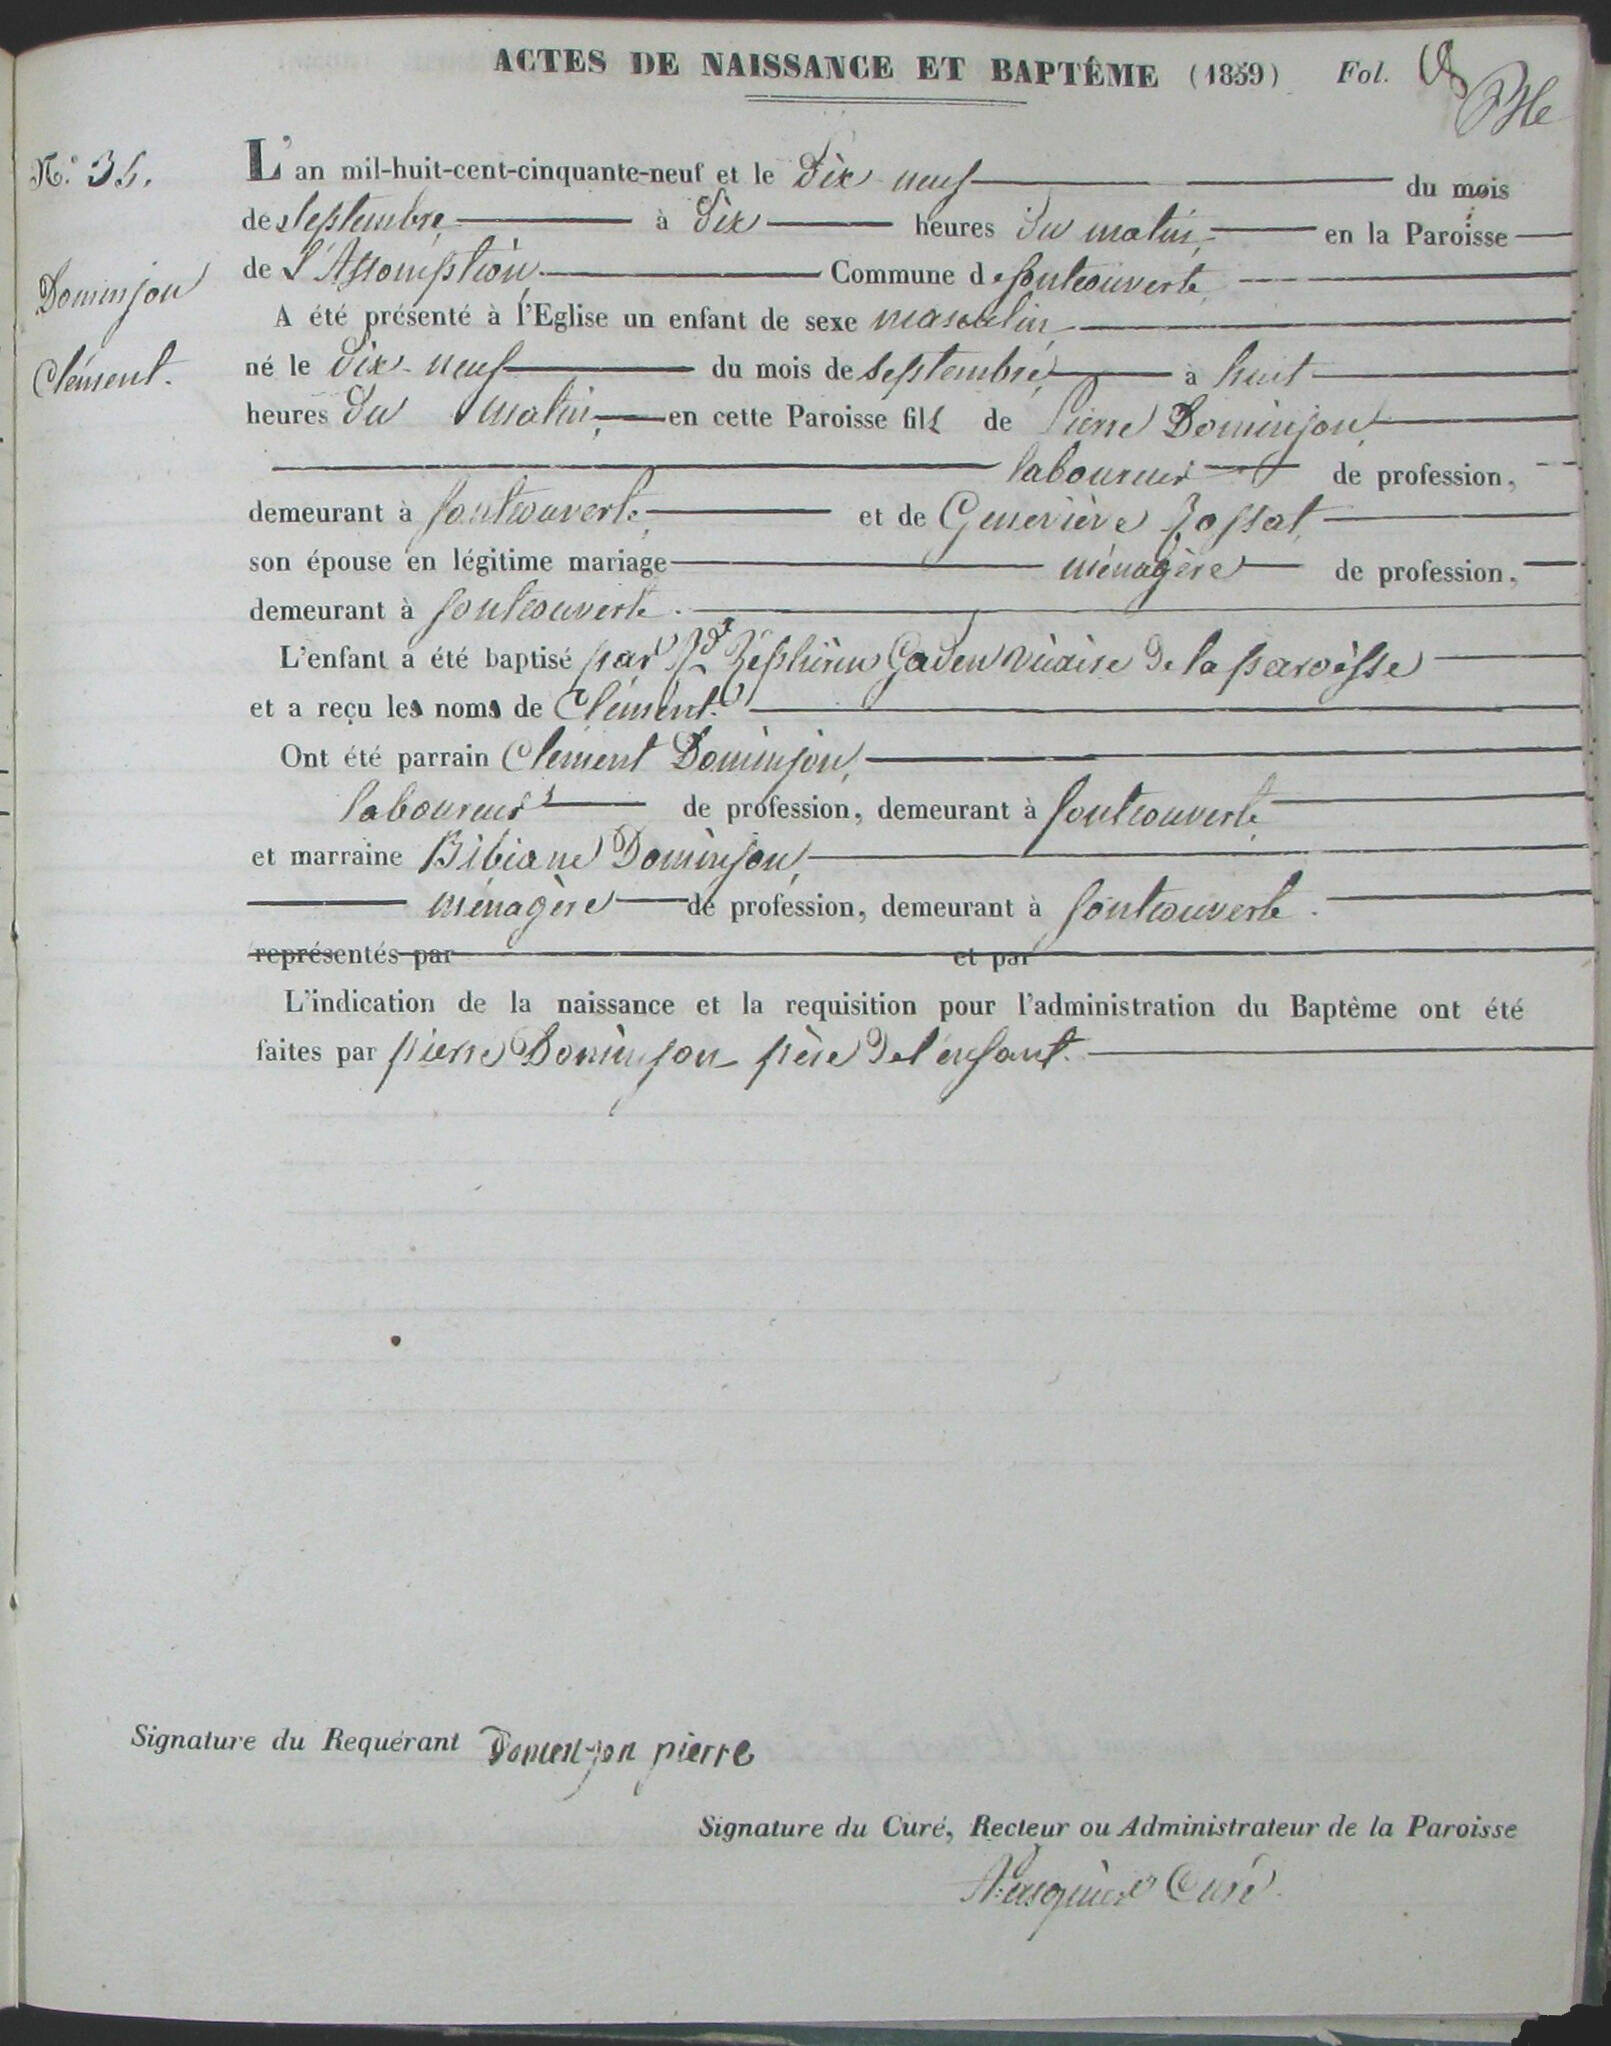 ACTES DE NAISSANCE ET BAPTÊME (1859) Fol.
N.º 35.
L'an mil-huit-cent-cinquante-neuf et le dix neuf du mois
de septembre à dix heures du matin, en la Paroisse
de L'Assomption Commune de fontcouverte
Dominjon
Clément.
A été présenté à l'Eglise un enfant de sexe masculin
né le dix-neuf du mois de septembre à huit
heures du matin, en cette Paroisse fils de Pierre Dominjon,
laboureur de profession,
demeurant à fontcouverte, et de Geneviève
son épouse en légitime mariage ménagère de profession,
demeurant à fontcouverte.
L'enfant a été baptisé par Rd Zéphirin Gaden vicaire de la paroisse
et a reçu les noms de Clément.
Ont été parrain Clément Dominjon,
laboureur de profession, demeurant à fontcouverte
et marraine Bibiane Dominjon,
ménagère de profession, demeurant à fontcouverte.
représentés par et par
L'indication de la naissance et la requisition pour l'administration du Baptême ont été
faites par pierre Dominjon père de l'enfant.
Signature du Requérant Domen-jon pierre
Signature du Curé, Recteur ou Administrateur de la Paroisse
Curé